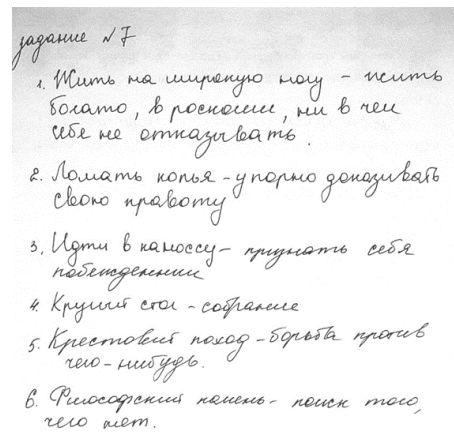 задание №7
1. Жить на широкую ногу - жить
богато, в роскоши, ни в чем
себе не отказывать.
2. Ломать копья - упорно доказывать
свою правоту
3. Идти в каноссу - признать себя
побежденним
4. Круглий стол - собрание
5. Крестовий поход - борьба против
чего-нибудь.
6. Философский камень - поиск того,
чего нет.